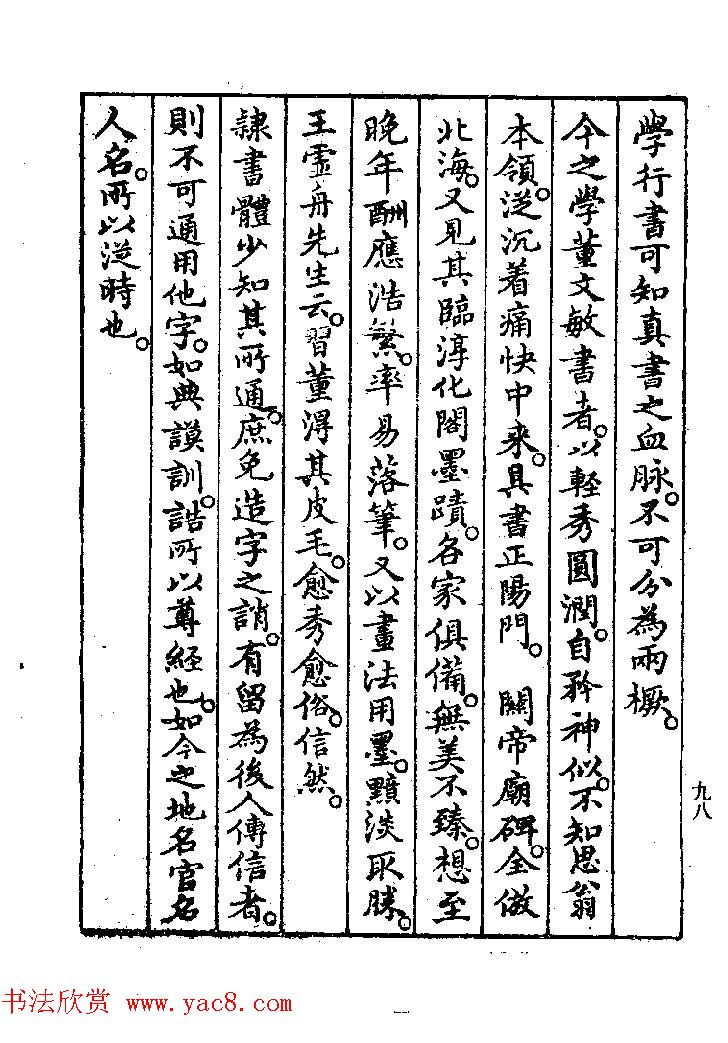 學行書可知真書之血脉。不可分為兩橛。
今之學董文敏書者。以輕秀圓潤。自矜神似。不知思翁
本領。従沉着痛快中来。其書正陽門。 關帝廟碑。全倣
北海。又見其臨淳化閣墨蹟。各家俱備。無美不臻。想至
晚年酬應浩繁。率易落筆。又以畫法用墨。黯淡取勝。
王虛舟先生云。習董淂其皮毛。愈秀愈俗。信然。
隸書體少知其所通。庶免造字之誚。有留為後人傳信者。
則不可通用他字。如典謨訓。誥所以尊經也。如今之地名官名
人名。所以従時也。
九八
书法欣赏 www.yac8.com